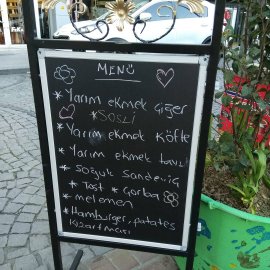 MENÜ
* Yarım ekmek ciğer
* SOSLİ
* Yarım ekmek köfte
* Yarım ekmek tavuk
* Soğuk sandeviç
* Tost * Çorba
* melemen
* Hamburger, patates
kızartması